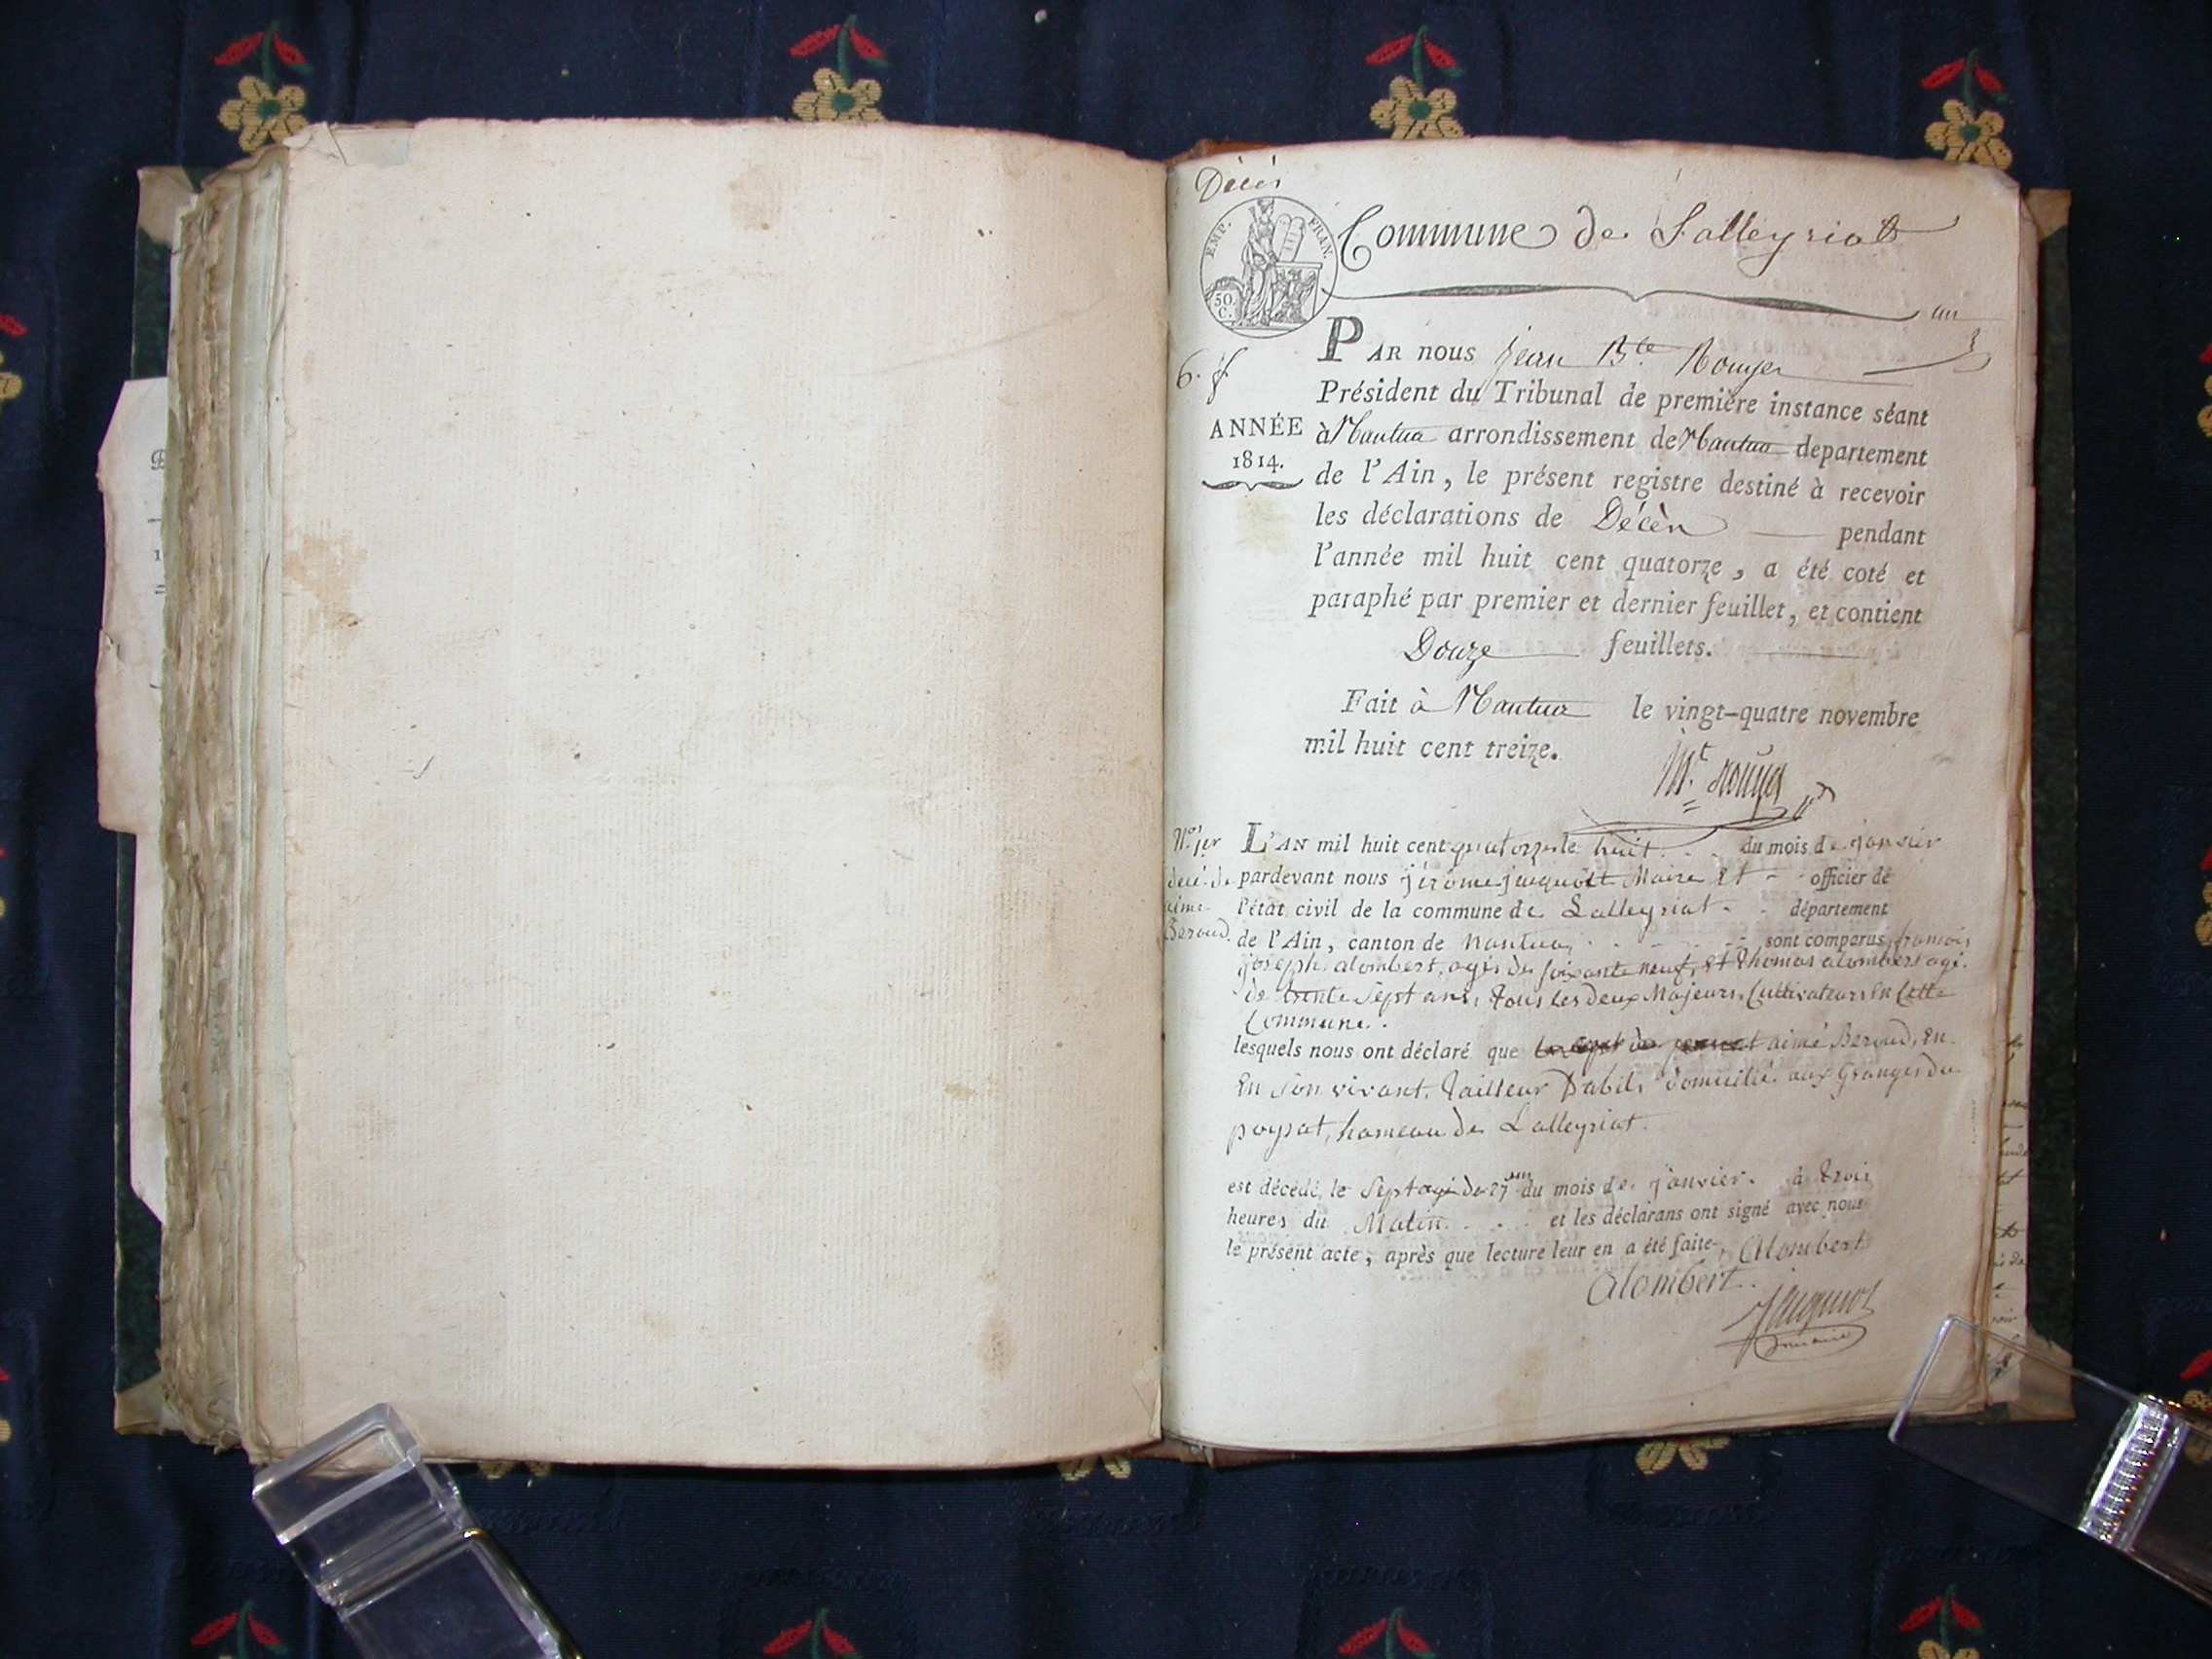 Décès
EMP. FRAN.
50.
C.
Commune de Lalleyriat
un
PAR nous Jean Bte Rouyer
6. f
Président du Tribunal de première instance séant
ANNÉE
1814.
à Nantua arrondissement de Nantua departement
de l'Ain, le présent registre destiné à recevoir
les déclarations de Décès pendant
l'année mil huit cent quatorze, a été coté et
paraphé par premier et dernier feuillet, et contient
Douze feuillets.
Fait à Nantua le vingt-quatre novembre
mil huit cent treize.
Rouyer
N.º 1er
décé. de
aimé
Beroud.
L'AN mil huit cent quatorze le huit du mois de janvier
pardevant nous jérome jacquiot Maire et officier de
l'état civil de la commune de Lalleyriat département
de l'Ain, canton de nantua, sont comparus, francois
joseph alombert, agés de soixante neuf, et thomas alombert agé.
de trente sept ans, tous les deux Majeurs, Cultivateurs en Cette
Commune.
lesquels nous ont déclaré que aimé Beroud, en
En son vivant, tailleur Dabits domicilié aux Granges du
poysat, hameau de Lalleyriat.
est décédé le Sept agé de 27 ans du mois de janvier. à trois
heures du Matin et les déclarans ont signé avec nous
le présent acte, après que lecture leur en a été faite. Alombert
Alombert.
Jacquiot
maire